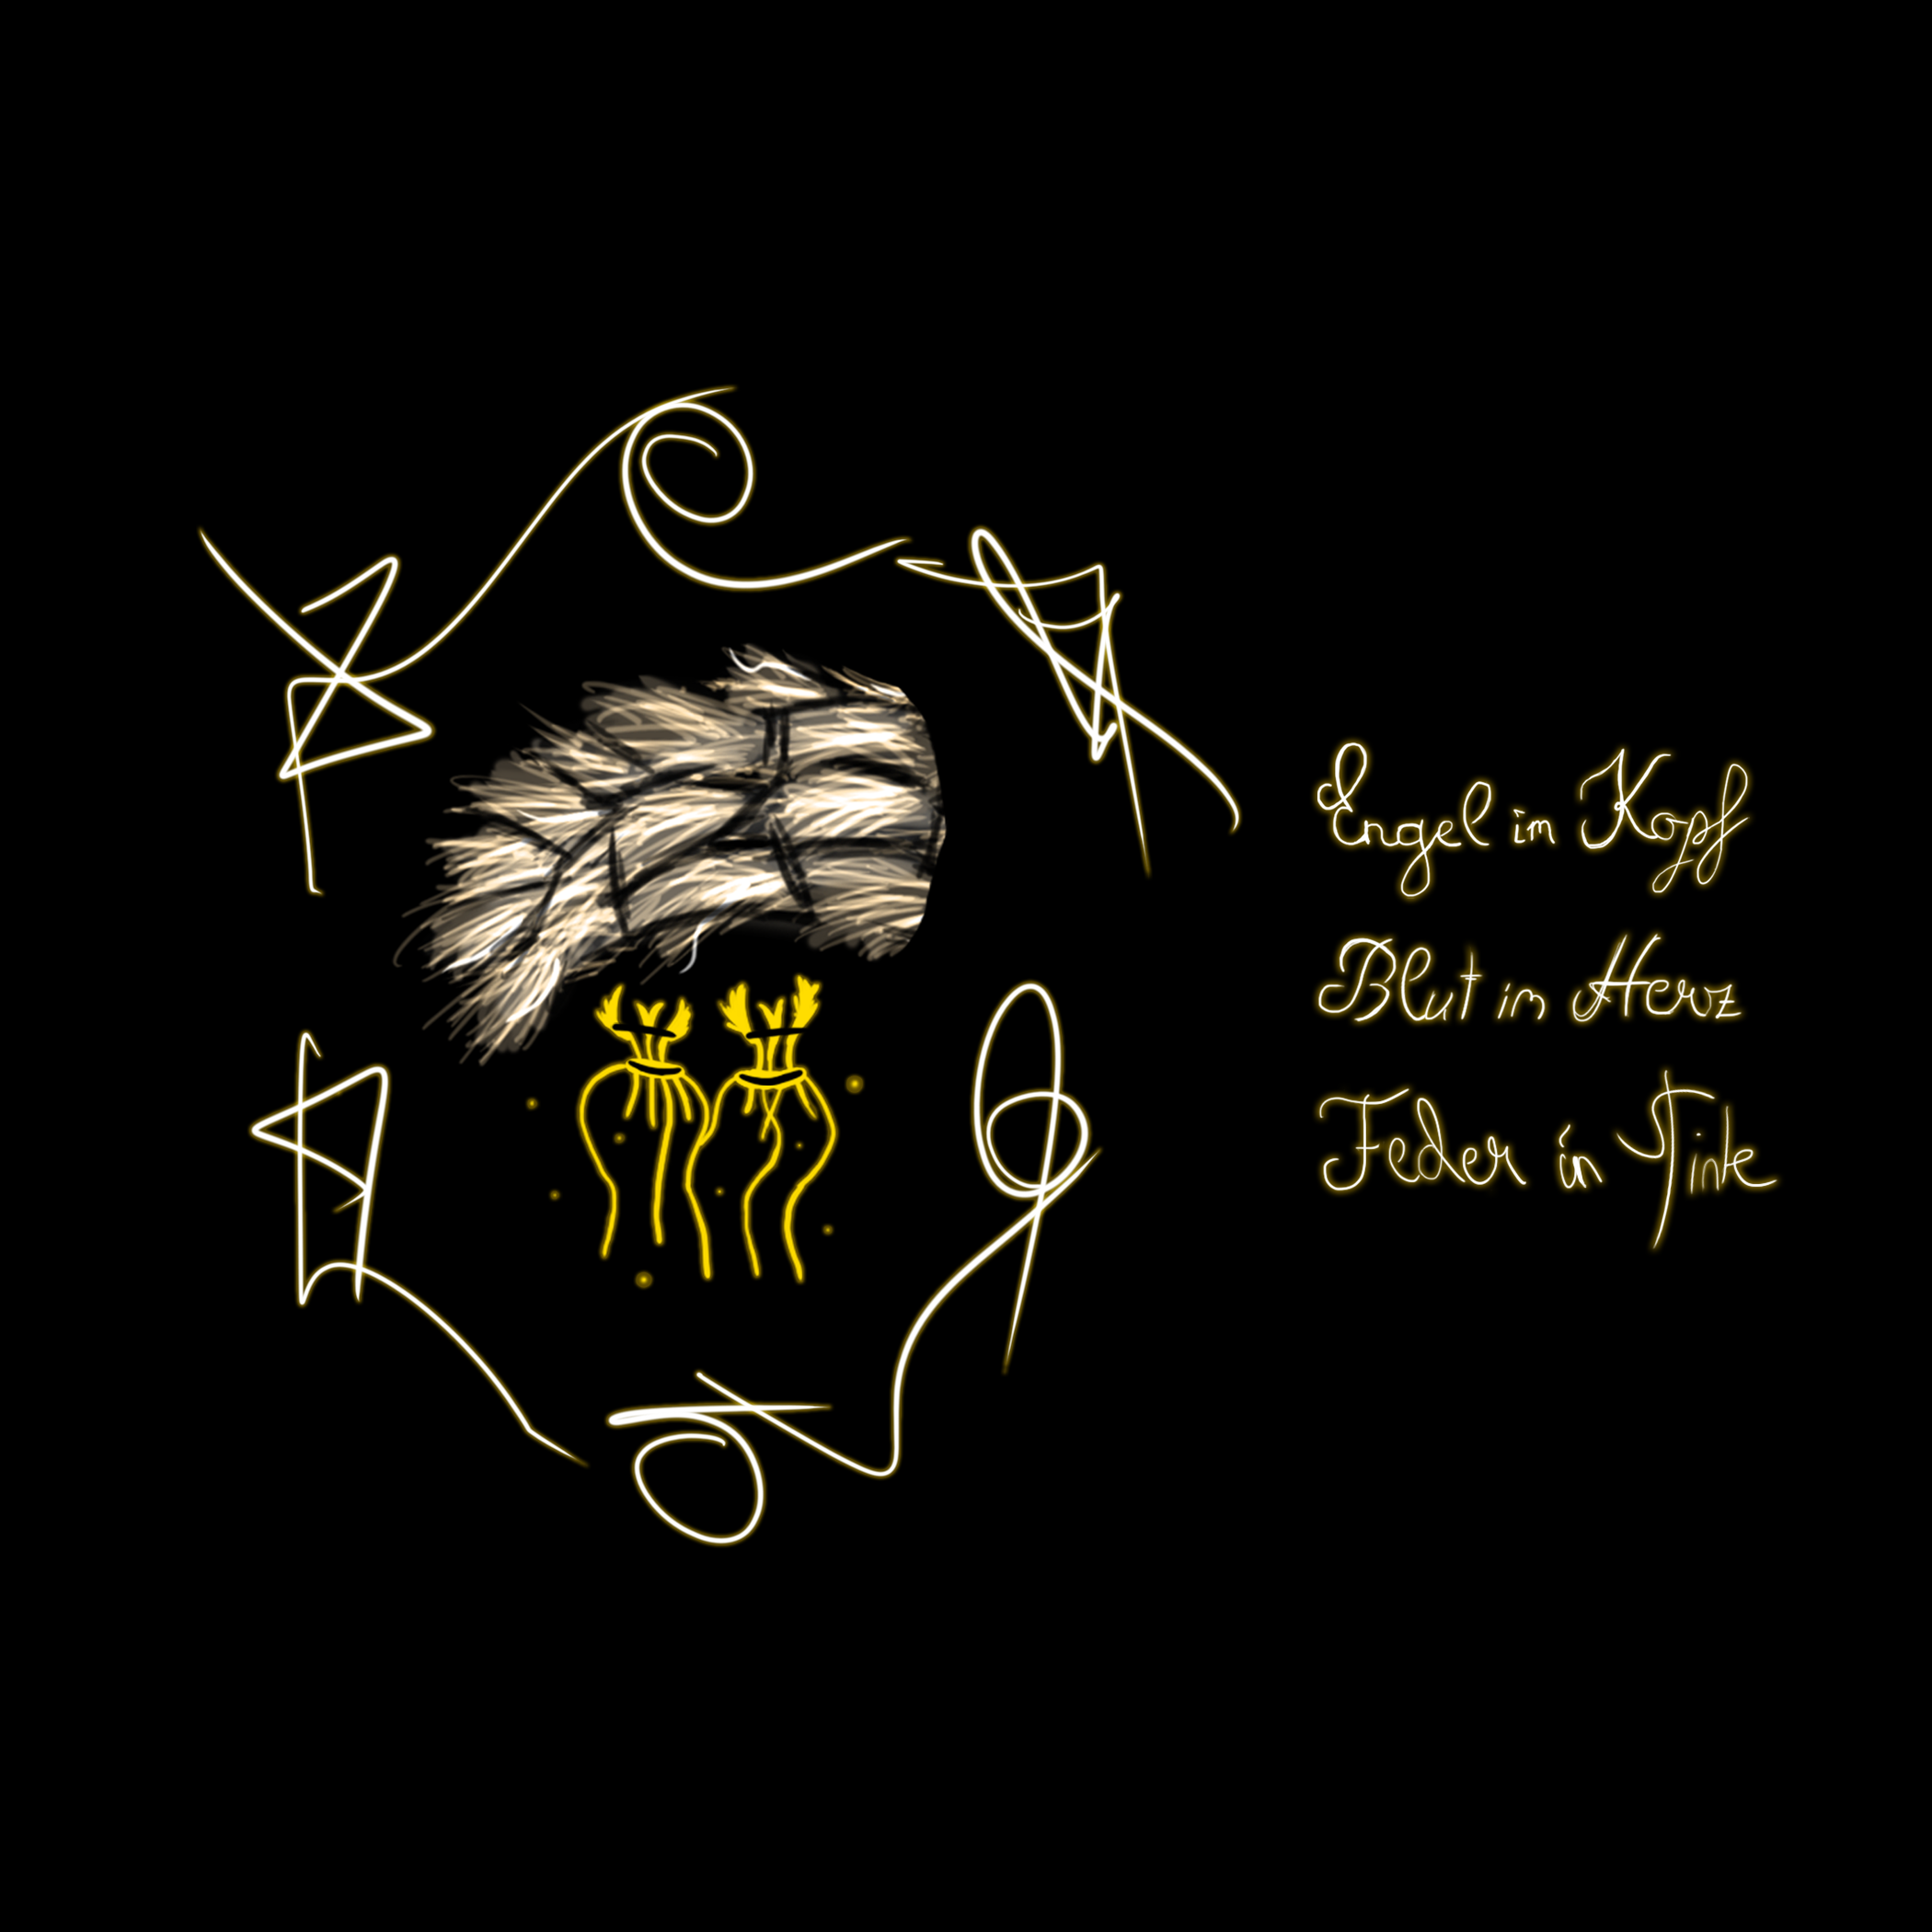 Engel im Kopf
Blut im Herz
Feder in Tinte